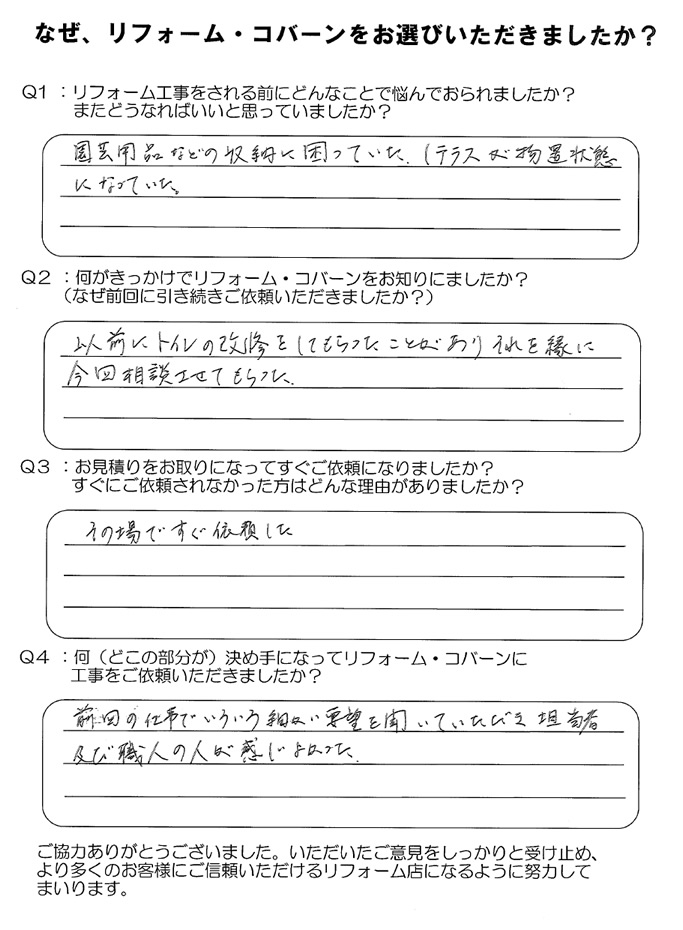 なぜ、リフォーム・コバーンをお選びいただきましたか？
Q1 ：リフォーム工事をされる前にどんなことで悩んでおられましたか？
またどうなればいいと思っていましたか？
園芸用品などの収納に困っていた。（テラスが物置状態
になっていた。
Q2 ：何がきっかけでリフォーム・コバーンをお知りにましたか？
（なぜ前回に引き続きご依頼いただきましたか？）
以前にトイレの改修をしてもらったことがありそれを縁に
今回相談させてもらった。
Q3 ：お見積りをお取りになってすぐご依頼になりましたか？
すぐにご依頼されなかった方はどんな理由がありましたか？
その場ですぐ依頼した
Q4 ：何（どこの部分が）決め手になってリフォーム・コバーンに
工事をご依頼いただきましたか？
前回の仕事でいろいろ細かい要望を聞いていただき担当者
及び職人の人が感じよかった。
ご協力ありがとうございました。いただいたご意見をしっかりと受け止め、
より多くのお客様にご信頼いただけるリフォーム店になるように努力して
まいります。